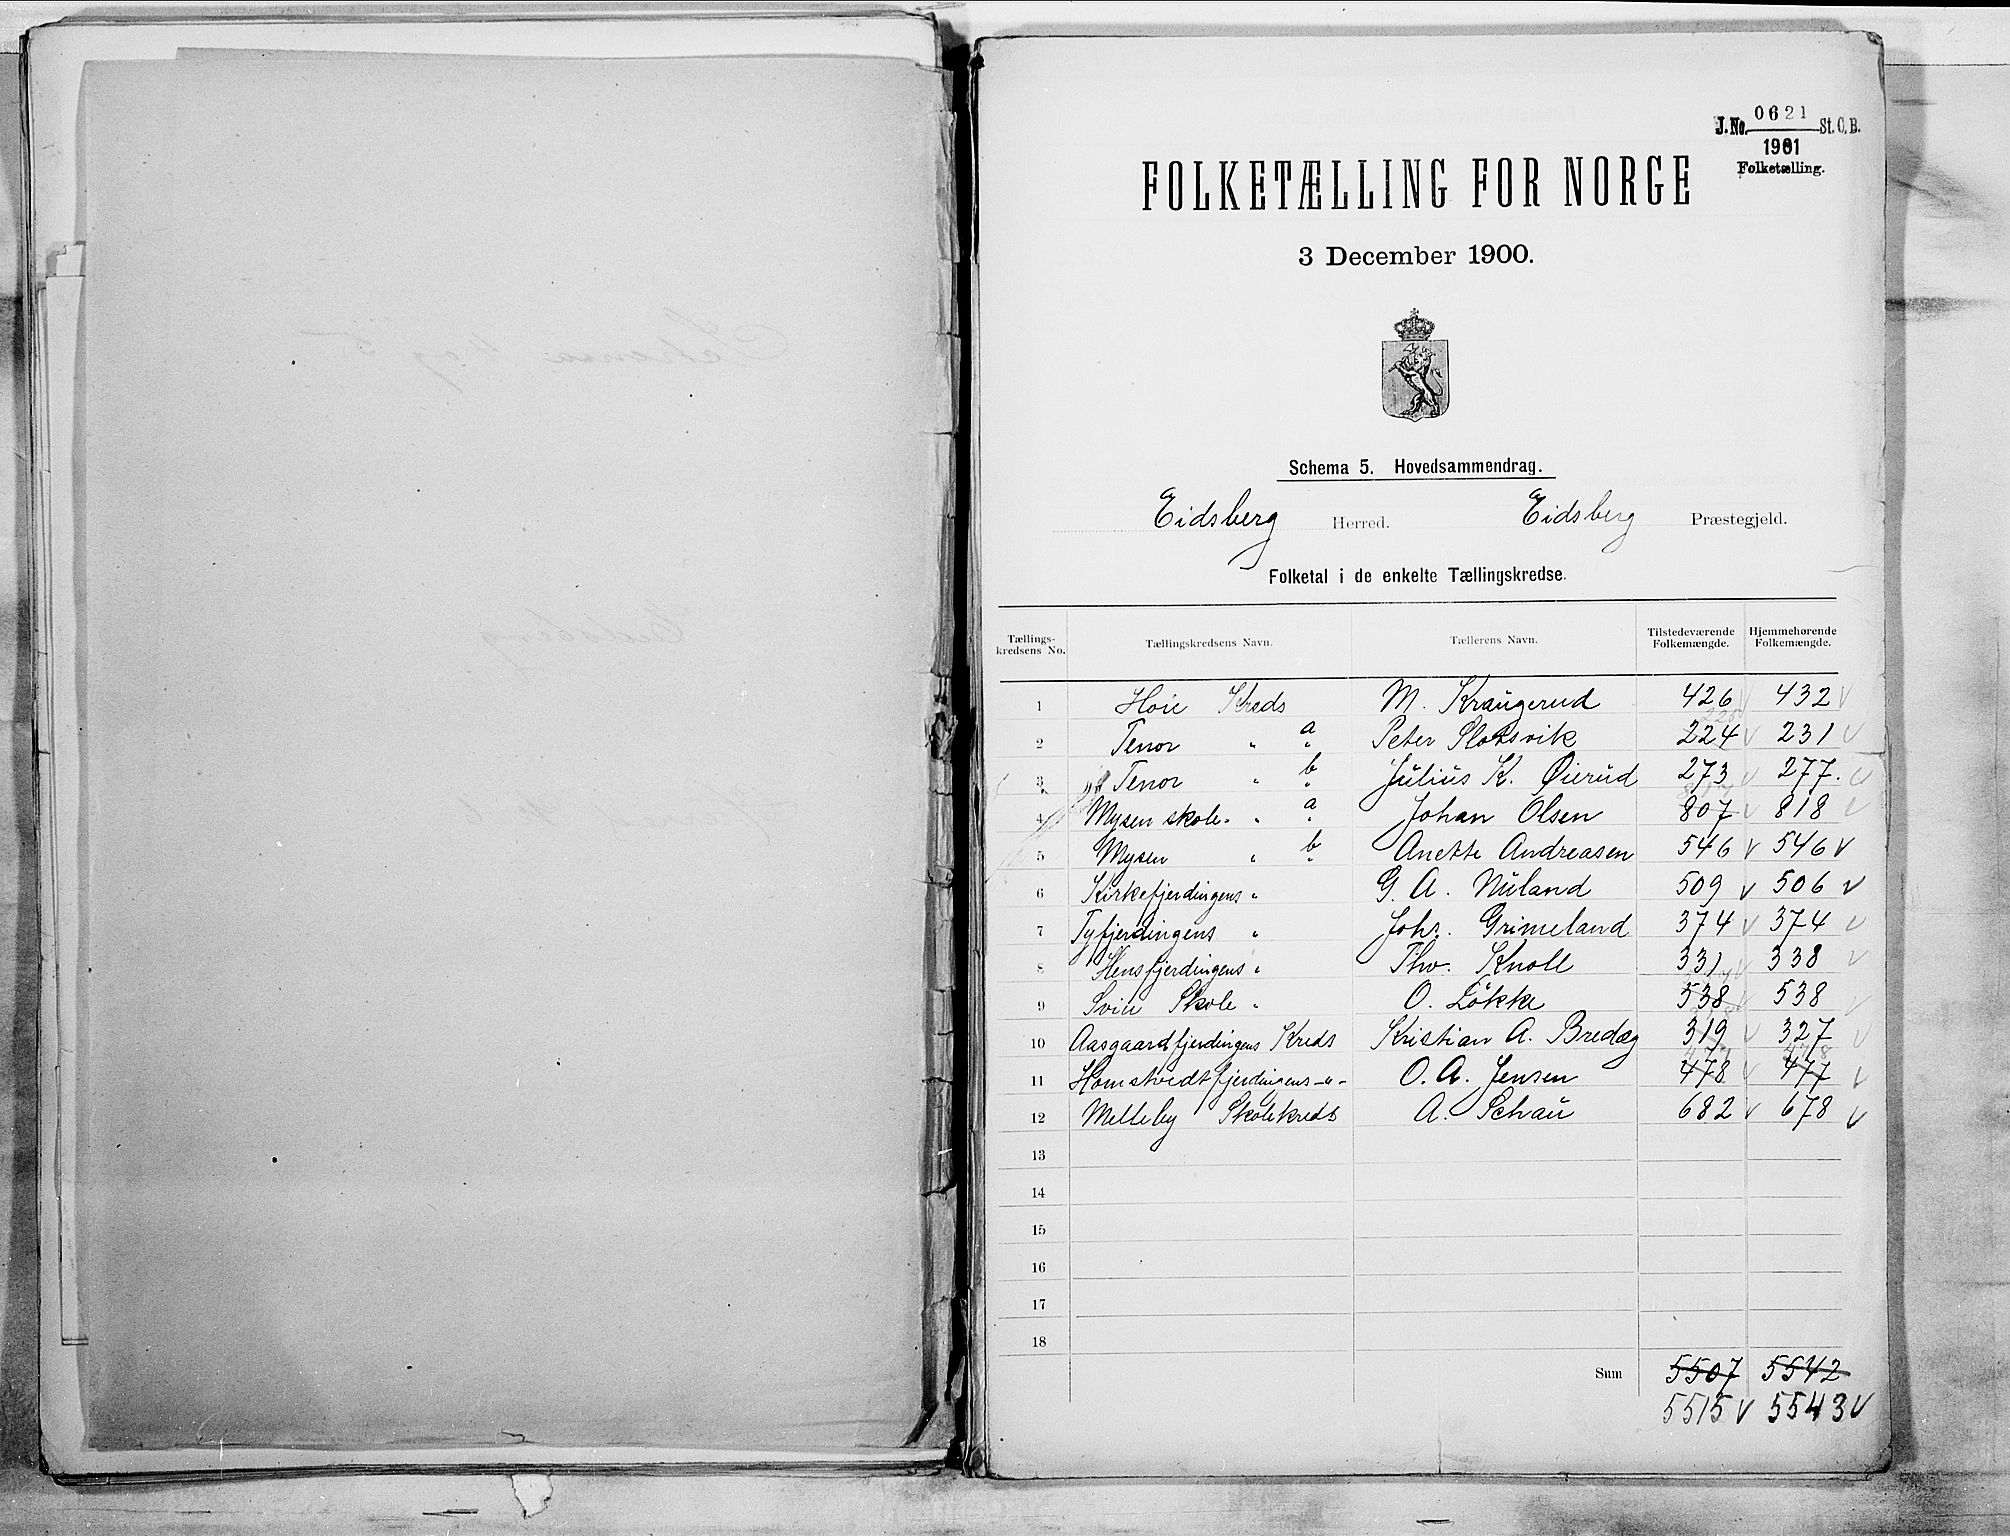 J. No. 0621 St. C. B.
1901
Folketælling.
FOLKETÆLLING FOR NORGE
3 December 1900.
Schema 5. Hovedsammendrag.
Eidsberg Herred. Eidsberg Præstegjeld.
Folketal i de enkelte Tællingskredse.
Tællings-kredsens No. Tællingskredsens Navn. Tællerens Navn. Tilstedeværende Folkemængde. Hjemmehørende Folkemængde.
1 Høie Kreds M. Kraugerud 426 432
2 Tenor " a Peter Slotsvik 224 231
3 Tenor " b Julius K. Øierud 273 277.
4 Mysen skole- " a Johan Olsen 807 818
5 Mysen " b Anette Andreasen 546 546
6 Kirkefjerdingens " G. A. Nuland 509 506
7 Tyfjerdingens " Johs. Grimeland 374 374
8 Hensfjerdingens " Thv. Knoll 331 338
9 Skole " O. Løkke 538 538
10 Aasgaardfjerdingens Kreds Kristian A. 319 327
11 Homstvedtfjerdingens -"- O. A. Jensen 478 477
12 Melleby Skolekreds A. Schau 682 678
13
14
15
16
17
18
Sum 5507 5542
5515 5543